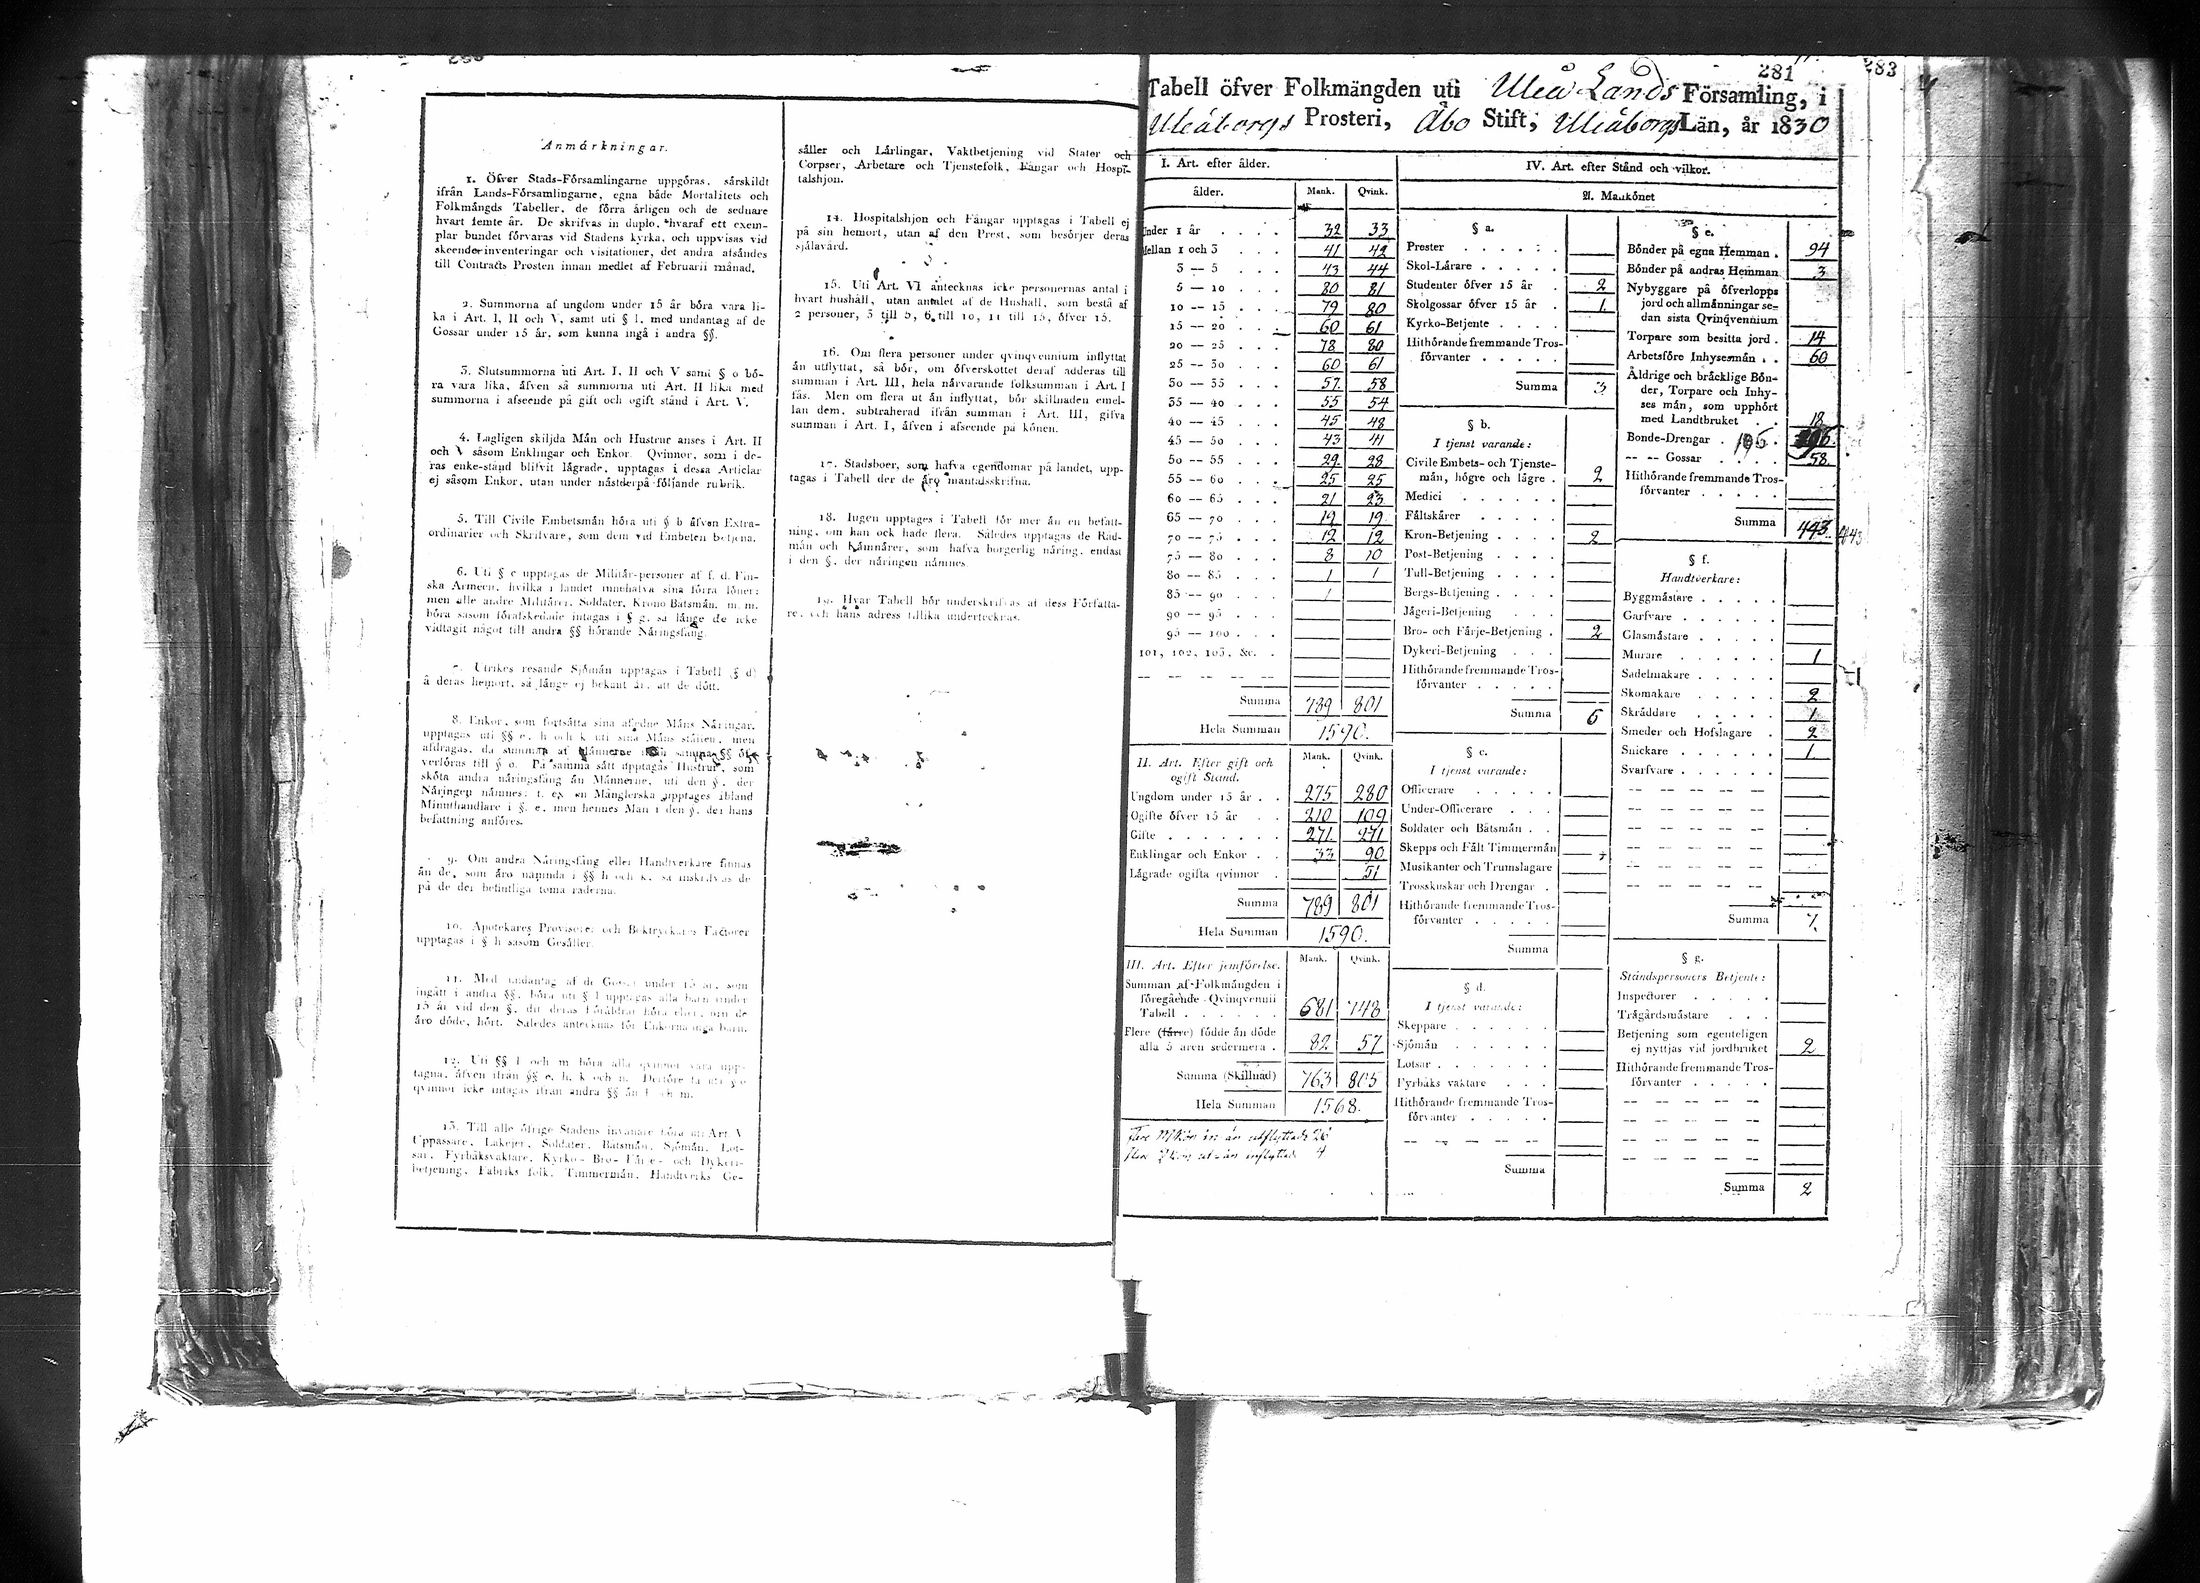 Anmärkningar.
1. Öfver Stads-Församlingarne uppgöras, särskildt
ifrån Lands-Församlingarne, egna både Mortalitets och
Folkmängds Tabeller, de förra årligen och de sednare
hvart femte år. De skrifvas in duplo, hvaraf ett exem-
plar bundet förvaras vid Stadens kyrka, och uppvisas vid
skeende inventeringar och visitationer, det andra afsändes
till Contracts Prosten innan medlet af Februarii månad.
2. Summorna af ungdom under 15 år böra vara li-
ka i Art. I, II och V, samt uti § l, med undantag af de
Gossar under 15 år, som kunna ingå i andra §§.
3. Slutsummorna uti Art. I, II och V samt § o bö-
ra vara lika, äfven så summorna uti Art. II lika med
summorna i afseende på gift och ogift stånd i Art. V.
4. Lagligen skiljda Män och Hustrur anses i Art. II
och V såsom Enklingar och Enkor. Qvinnor, som i de-
ras enke-stånd blifvit lägrade, upptagas i dessa Articlar
ej såsom Enkor, utan under nästderpå följande rubrik.
5. Till Civile Embetsmän höra uti § b äfven Extra-
ordinarier och Skrifvare, som dem vid Embeten betjena.
6. Uti § c upptagas de Militär-personer af f. d. Fin-
ska Armeen, hvilka i landet innehafva sina förra löner;
men alle andre Militärer, Soldater, Krono Båtsmän, m. m.
böra såsom förafskedade intagas i § g, så länge de icke
vidtagit något till andra §§ hörande Näringsfång.
7. Utrikes resande Sjömän upptagas i Tabell (§ d)
å deras hemort, så länge ej bekant är, att de dött.
8. Enkor, som fortsätta sina aflidne Mäns Näringar,
upptagas uti §§ e, h och k uti sina Mäns ställen, men
afdragas, då summan af Männerne ifrån samma §§ öf-
verföras till § o. På samma sätt upptagas Hustrur, som
sköta andra näringsfång än Männerne, uti den §, der
Näringen nämnes: t. ex. en Månglerska upptages ibland
Minuthandlare i §. e, men hennes Man i den §, der hans
befattning anföres.
9. Om andra Näringsfång eller Handtverkare finnas
än de, som äro nämnda i §§ h och k, så inskrifvas de
på de der befintliga toma raderna.
10. Apotekares Provisorer och Boktryckares Factorer
upptagas i § h såsom Gesäller.
11. Med undantag af de Gossar under 15 år, som
ingått i andra §§, böra uti § l upptagas alla barn under
15 år vid den §, dit deras Föräldrar höra eller, om de
äro döde, hört. Således antecknas för Enkorna inga barn.
12. Uti §§ l och m böra alla qvinnor vara upp-
tagna, äfven ifrån §§ e, h, k och n. Derföre få uti § o
qvinnor icke intagas ifrån andra §§ än l och m.
13. Till alle öfrige Stadens invånare höra uti Art. V
Uppassare, Lakejer, Soldater, Båtsmän, Sjömän, Lot-
sar, Fyrbåksväktare, Kyrko- Bro- Färje- och Dykeri-
betjening, Fabriks folk, Timmermän, Handtverks Ge-
säller och Lärlingar, Vaktbetjening vid Stater och
Corpser, Arbetare och Tjenstefolk, Fångar och Hospi-
talshjon.
14. Hospitalshjon och Fångar upptagas i Tabell ej
på sin hemort, utan af den Prest, som besörjer deras
själavård.
15. Uti Art. VI antecknas icke personernas antal i
hvart hushåll, utan antalet af de Hushåll, som bestå af
2 personer, 3 till 5, 6 till 10, 11 till 15, öfver 15.
16. Om flera personer under qvinqvennium inflyttat
än utflyttat, så bör, om öfverskottet deraf adderas till
summan i Art. III, hela närvarande folksumman i Art. I
fås. Men om flera ut än inflyttat, bör skillnaden emel-
lan dem, subtraherad ifrån summan i Art. III, gifva
summan i Art. I, äfven i afseende på könen.
17. Stadsboer, som hafva egendomar på landet, upp-
tagas i Tabell der de äro mantalsskrifna.
18. Ingen upptages i Tabell för mer än en befatt-
ning, om han ock hade flera. Således upptagas de Råd-
män och Kämnärer, som hafva borgerlig näring, endast
i den §, der näringen nämnes.
19. Hvar Tabell bör underskrifvas af dess Författa-
re, och hans adress tillika undertecknas.
281 283
Tabell öfver Folkmängden uti Uleå Lands Församling, i
Uleåborgs Prosteri, Åbo Stift, Uleåborgs Län, år 1830
I. Art. efter ålder.
ålder. Mank. Qvink.
Under 1 år 32 33
Mellan 1 och 3 41 42
3 — 5 43 44
5 — 10 80 81
10 — 15 79 80
15 — 20 60 61
20 — 25 78 80
25 — 30 60 61
30 — 35 57 58
35 — 40 55 54
40 — 45 45 48
45 — 50 43 41
50 — 55 29 28
55 — 60 25 25
60 — 65 21 23
65 — 70 19 19
70 — 75 12 12
75 — 80 8 10
80 — 85 1 1
85 — 90 1
90 — 95
95 — 100
101, 102, 103, &c.
Summa 789 801
Hela Summan 1590.
II. Art. Efter gift och
ogift Stånd. Mank. Qvink.
Ungdom under 15 år 275 280
Ogifte öfver 15 år 210 109
Gifte 271 271
Enklingar och Enkor 33 90
Lägrade ogifta qvinnor 51
Summa 789 801
Hela Summan 1590.
III. Art. Efter jemförelse. Mank. Qvink.
Summan af Folkmängden i
föregående Qvinqvennii
Tabell 681 748
Flere (färre) födde än döde
alla 5 åren sedermera 82 57
Summa (Skillnad) 763 805
Hela Summan 1568.
flere Mkön in än utflyttade 26
flere Qkön ut än inflyttade 4
IV. Art. efter Stånd och vilkor.
A. Mankönet
§ a.
Prester
Skol-Lärare
Studenter öfver 15 år 2
Skolgossar öfver 15 år 1
Kyrko-Betjente
Hithörande fremmande Tros-
förvanter
Summa 3
§ b.
I tjenst varande:
Civile Embets- och Tjenste-
män, högre och lägre 2
Medici
Fältskärer
Kron-Betjening 2
Post-Betjening
Tull-Betjening
Bergs-Betjening
Jägeri-Betjening
Bro- och Färje-Betjening 2
Dykeri-Betjening
Hithörande fremmande Tros-
förvanter
Summa 6
§ c.
I tjenst varande:
Officerare
Under-Officerare
Soldater och Båtsmän
Skepps och Fält Timmermän
Musikanter och Trumslagare
Trosskuskar och Drengar
Hithörande fremmande Tros-
förvanter
Summa
§ d.
I tjenst varande:
Skeppare
Sjömän
Lotsar
Fyrbåks väktare
Hithörande fremmande Tros-
förvanter
Summa
§ e.
Bönder på egna Hemman 94
Bönder på andras Hemman 3
Nybyggare på öfverlopps
jord och allmänningar se-
dan sista Qvinqvennium
Torpare som besitta jord 14
Arbetsföre Inhysesmän 60
Åldrige och bräcklige Bön-
der, Torpare och Inhy-
ses män, som upphört
med Landtbruket 18
Bonde-Drengar 196
— — Gossar 58
Hithörande fremmande Tros-
förvanter
Summa 443 443
§ f.
Handtverkare:
Byggmästare
Garfvare
Glasmästare
Murare 1
Sadelmakare
Skomakare 2
Skräddare 1
Smeder och Hofslagare 2
Snickare 1
Svarfvare
Summa 7
§ g.
Ståndspersoners Betjente:
Inspectorer
Trägårdsmästare
Betjening som egenteligen
ej nyttjas vid jordbruket 2
Hithörande fremmande Tros-
förvanter
Summa 2